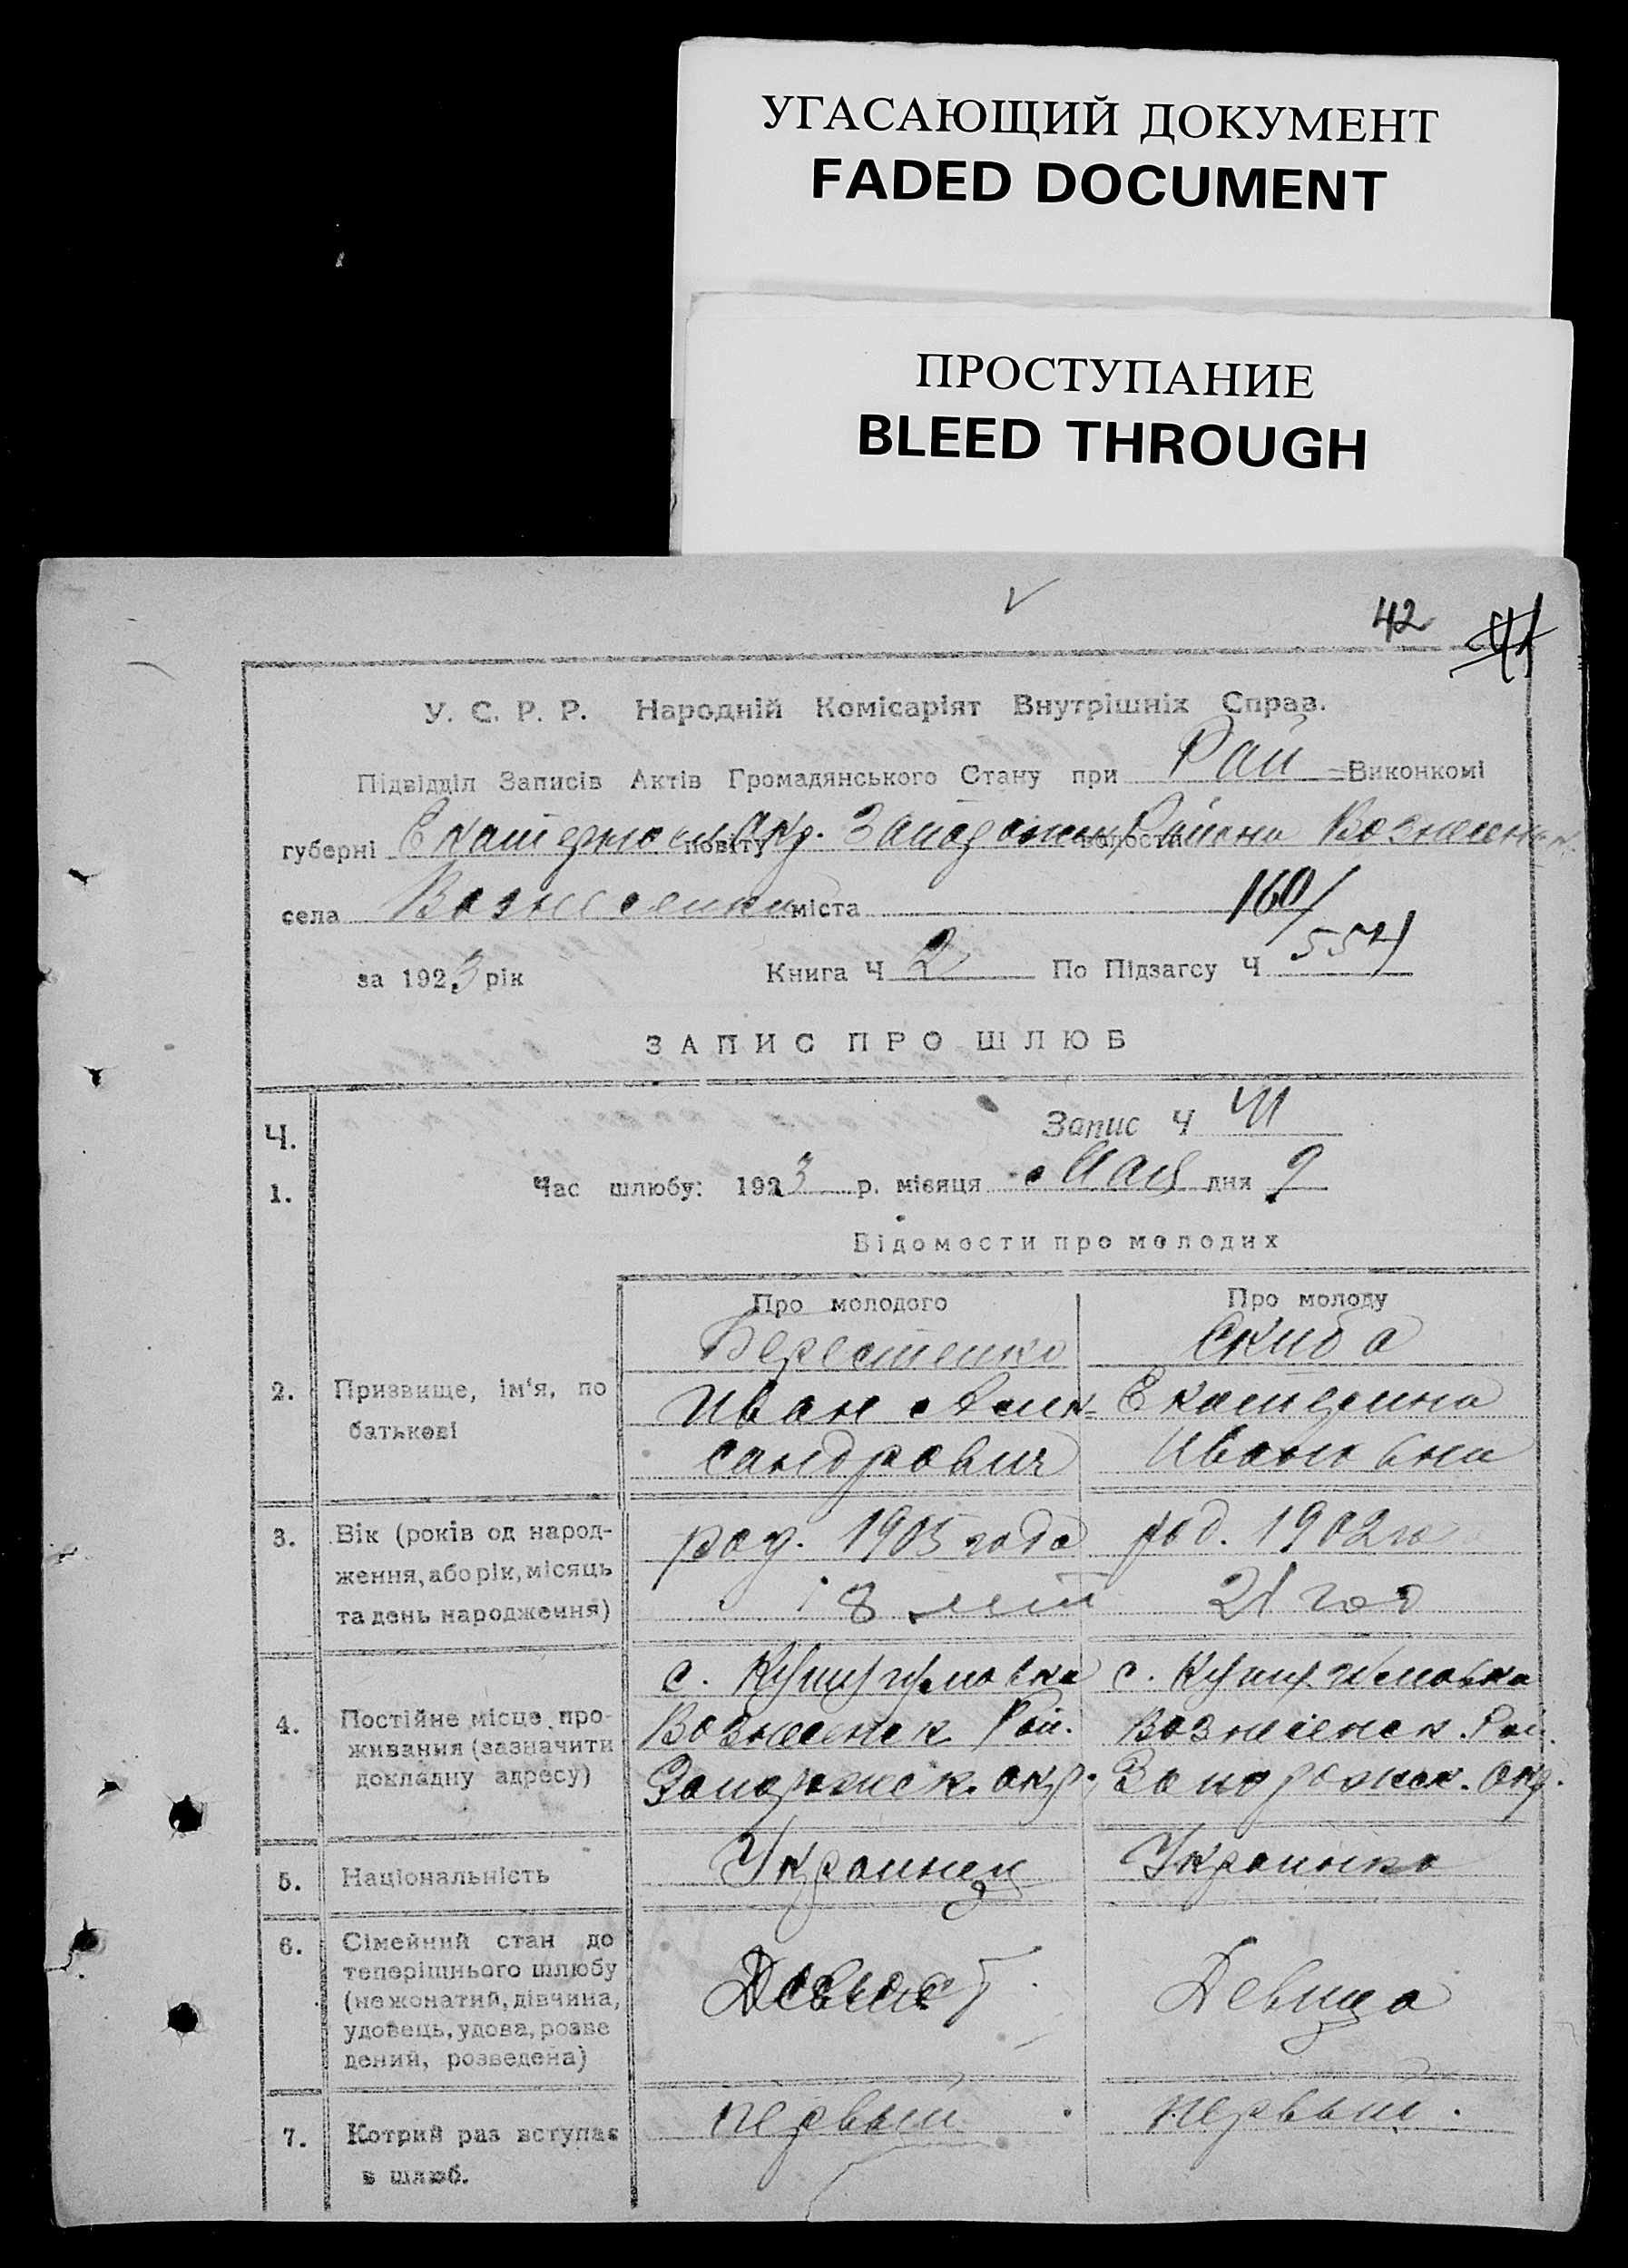 УГАСАЮЩИЙ ДОКУМЕНТ
FADED DOCUMENT
ПРОСТУПАНИЕ
BLEED THROUGH
42
У. С. Р. Р. Народній Комісаріят Внутрішніх Справ.
Підвідділ Записів Актів Громадянського Стану при Рай Виконкомі
губерні повіту Окр. волости Района
села Вознесенки міста 160/
за 1923 рік Книга Ч 2 По Підзагсу Ч 554
ЗАПИС ПРО ШЛЮБ
Ч. Запис Ч 41
1. Час шлюбу: 1923 р. місяця Мая дня 9
Відомости про молодих
Про молодого Про молоду
Берестенко Скиба
2. Призвище, ім'я, по Иван Алек- Екатерина
батькові сандрович Ивановна
3. Вік (років од народ- род. 1905 года род. 1902 го
ження, або рік, місяць
та день народження) 18 лет 21 год
с. Кушугумовка с. Кушугумовка
4. Постійне місце про- Вознесенск Рай. Вознесенск. Рай.
живання (зазначити
докладну адресу) Запорожск. окр. Запорожск. Окр.
5. Національність Украинец Украинка
6. Сімейний стан до
теперішнього шлюбу
(нежонатий, дівчина, Девица
удовець, удова, розве
дений, розведена)
7. Котрий раз вступає первый первый.
в шлюб.